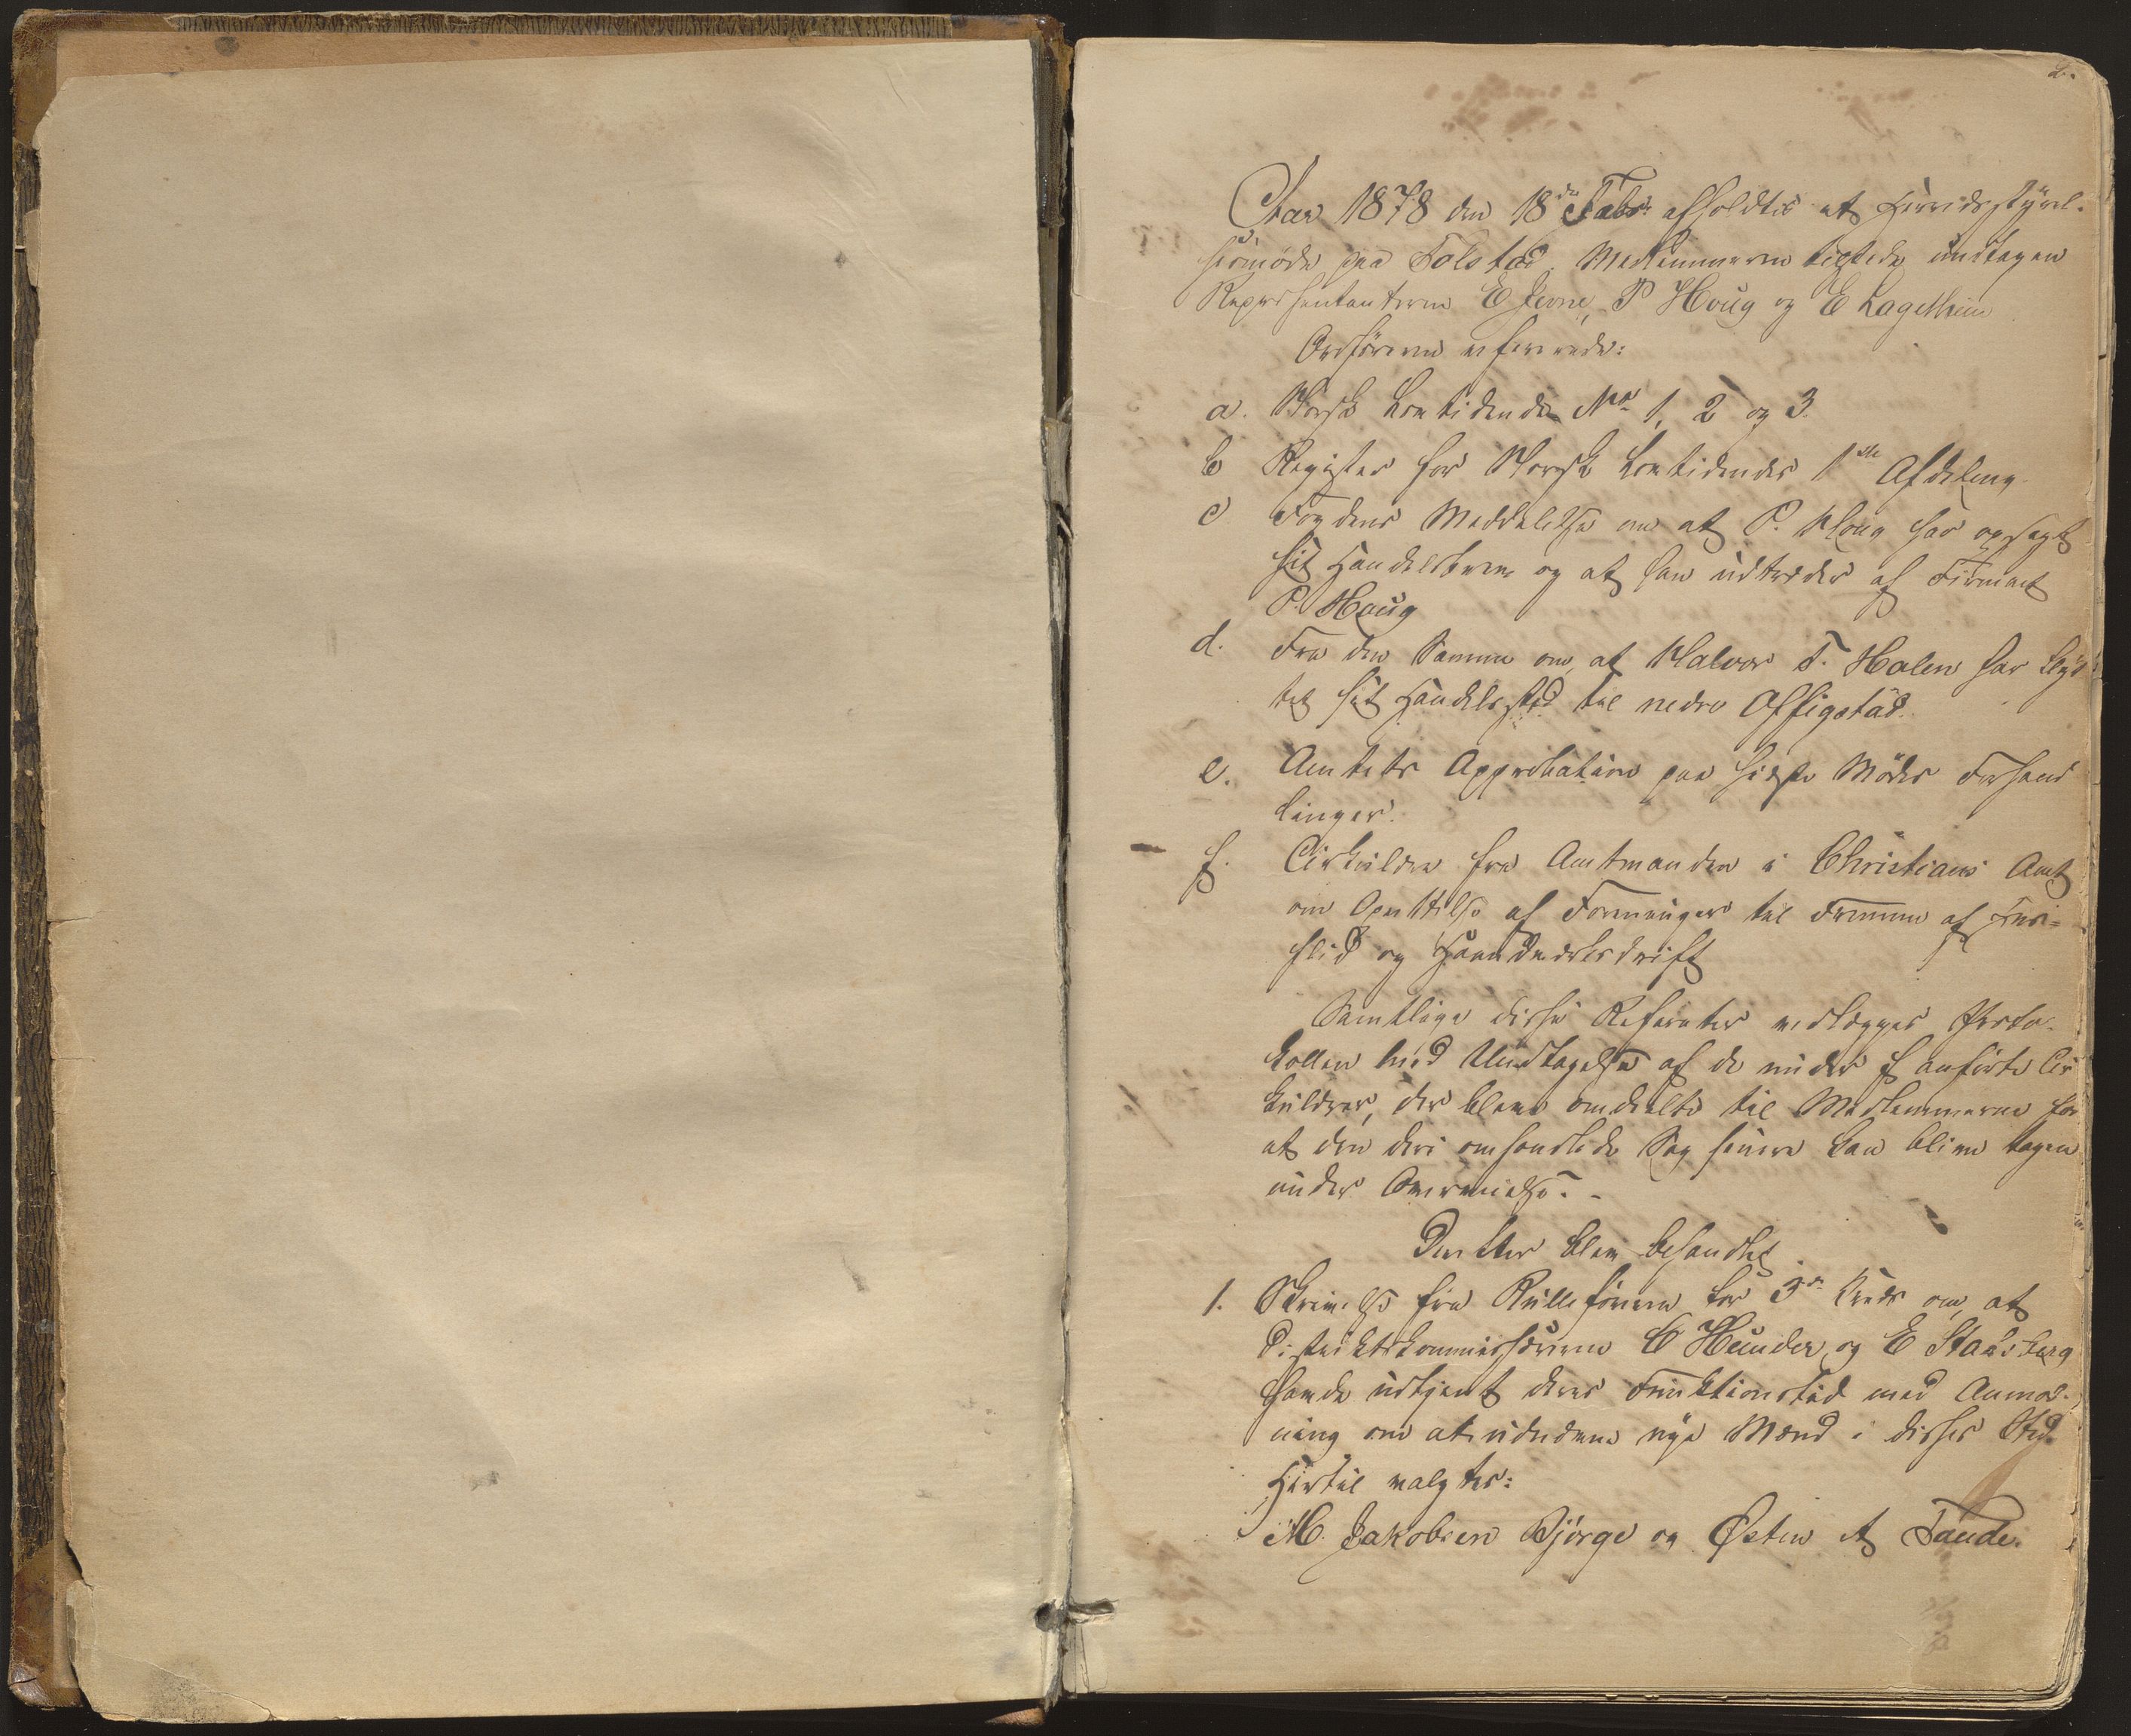 2.
Aar 1878 den 18de Febr: afholdtes et Herredsstyrel-
sesmöde paa Tolstad. Medlemmerne mödte undtagen
Repræsentanterne E Jevne, P Houg og E Lagetheim
Ordföreren refererede:
a. Norsk Lovtidende No 1, 2 og 3.
b Register for Norsk Lovtidendes 1ste Afdeling.
c Fogdens Meddelelse om at P. Houg har opsagt
sit Handelsbrev og at han udtræder af Firmaet
P. Houg
d. Fra den Samme om, at Halvor T. Holen har flyt
tet sit Handelssted til nedre Offigstad.
e. Amtets Approbation paa sidste Mödes Forhand
linger.
f. Cirkulære fra Amtmanden i Christians Amt
om Oprettelse af Foreninger til Fremme af Hus-
flid og Haandverksdrift
Samtlige disse Referater vedlægges Proto-
kollen med Undtagelse af de under f anförte Cir
kulærer, der bleve omdeelte til Medlemmerne for
at den deri omhandlede Sag senere kan blive tagen
under Overveielse. -
Derefter blev behandlet
1. Skrivelse fra Rulleföreren for 3die Kreds om, at
Distriktskommissærerne C Heunder og E Staksberg
havde udtjent deres Funktionstid med Anmod-
ning om at udvælge nye Mænd i disses Sted.
Hertil valgtes:
M. Jakobsen Bjørge og Østen A Taude.